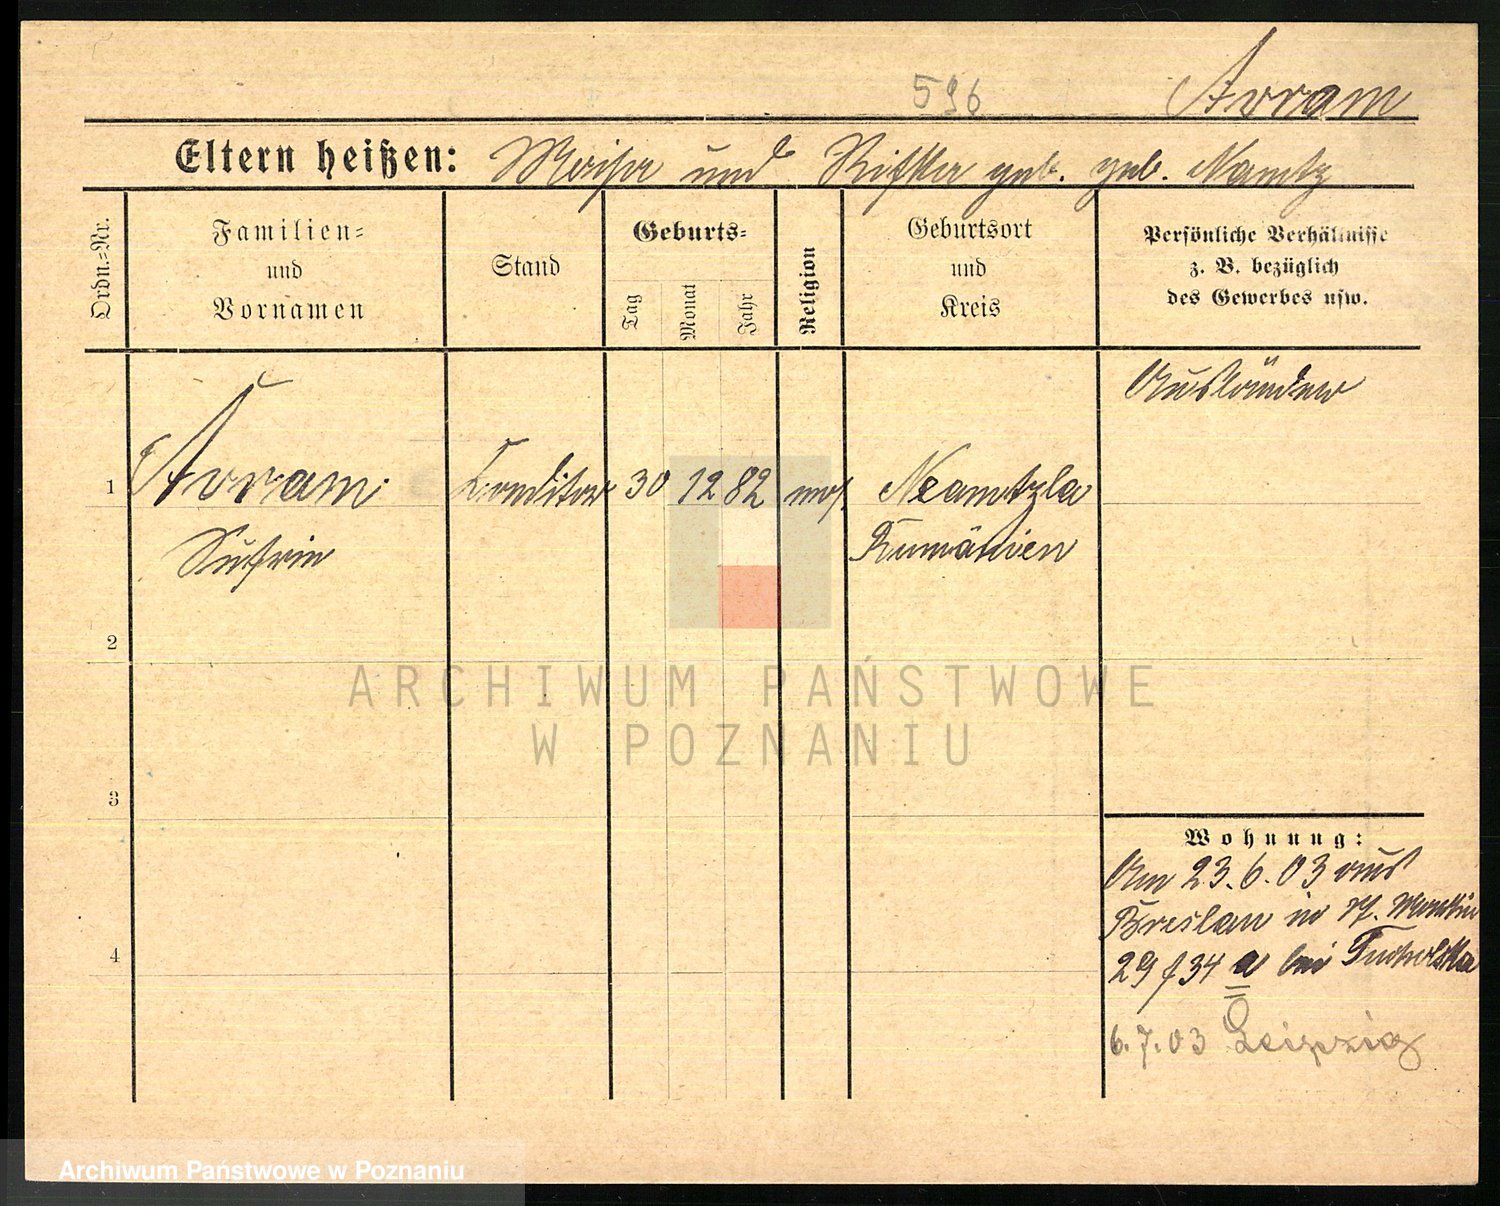 596 Avram
Eltern heißen: und Rifka geb. geb. Namtz
Ordn.-Nr.
Familien-
und
Vornamen
Stand
Geburts-
Tag
Monat
Jahr
Religion
Geburtsort
und
Kreis
Persönliche Verhältnisse
z. B. bezüglich
des Gewerbes usw.
Ausländer
1 Avram Conditor 30 12 82 mos. Neamtzla
Rumänien
2
3
4
ARCHIWUM PAŃSTWOWE
W POZNANIU
Wohnung:
Am 23.6.03 aus
Breslau in
29 34 a bei
6.7.03 Leipzig
Archiwum Państwowe w Poznaniu